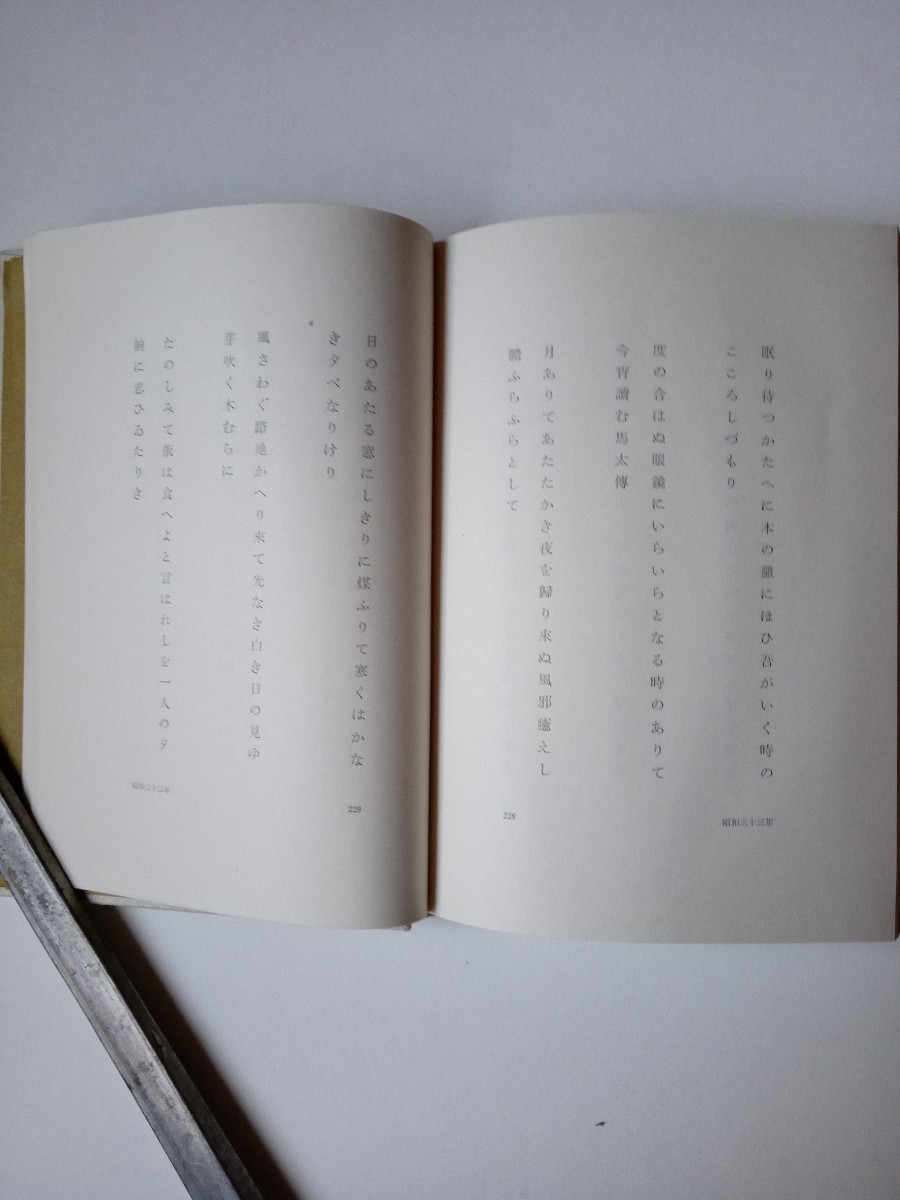 眠り待つかたへに木の瓛にほひ吾がいく時の
こころしづもり
度の合はぬ眼鏡にいらいらとなる時のありて
今宵讀む馬太傳
月ありてあたたかき夜を歸り來ぬ風邪癒えし
體ふらふらとして
昭和三十三年
228
日のあたる窓にしきりに煤ふりて寒くはかな
き夕べなりけり
*
風さわぐ路地かへり來て光なき白き日の見ゆ
芽吹く木むらに
たのしみて飯は食へよと言はれしを一人の夕
餉に思ひゐたりき
229
昭和三十三年